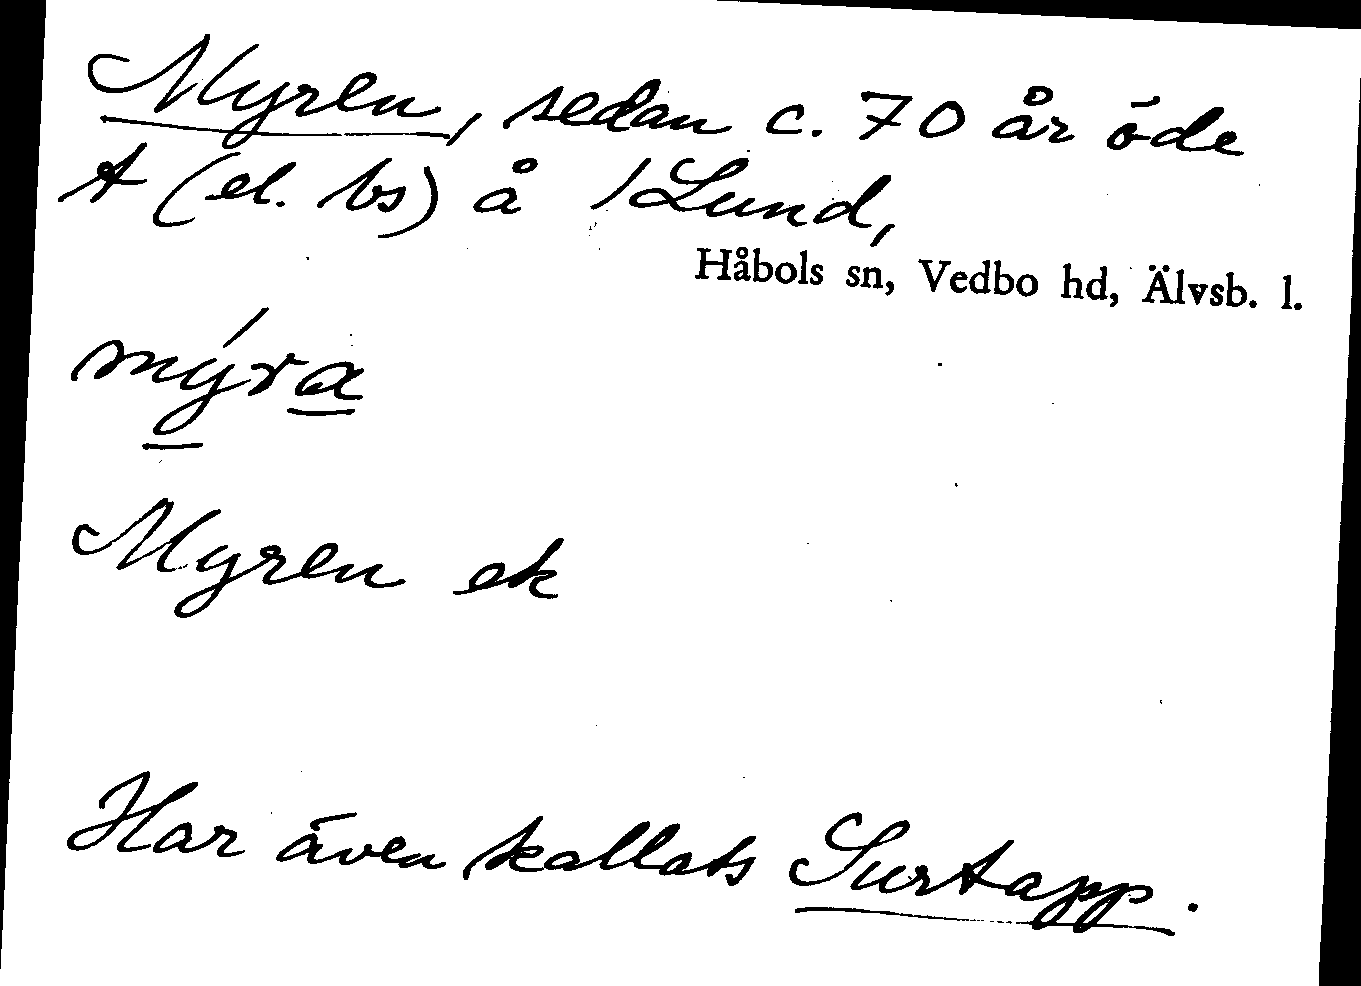 Myren, sedan c. 70 år öde
t (el. bs) å /Lund,
Håbols sn, Vedbo hd, Älvsb. l.
mýra
Myren ek
Har även kallats Surtapp.